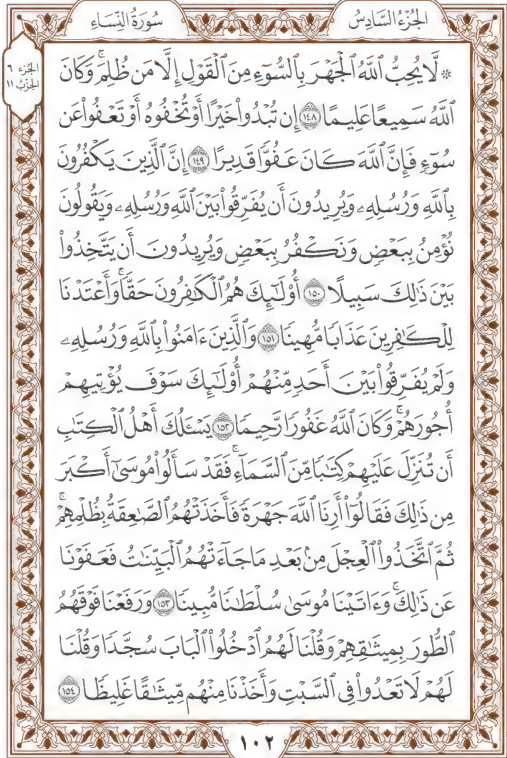 الجُزْءُ السَّادِسُ
سُورَةُ النِّسَاءِ
الجزء ٦
الحزب ١١
۞ لَّا يُحِبُّ ٱللَّهُ ٱلۡجَهۡرَ بِٱلسُّوٓءِ مِنَ ٱلۡقَوۡلِ إِلَّا مَن ظُلِمَۚ وَكَانَ
ٱللَّهُ سَمِيعًا عَلِيمًا ١٤٨ إِن تُبۡدُواْ خَيۡرًا أَوۡ تُخۡفُوهُ أَوۡ تَعۡفُواْ عَن
سُوٓءٖ فَإِنَّ ٱللَّهَ كَانَ عَفُوّٗا قَدِيرًا ١٤٩ إِنَّ ٱلَّذِينَ يَكۡفُرُونَ
بِٱللَّهِ وَرُسُلِهِۦ وَيُرِيدُونَ أَن يُفَرِّقُواْ بَيۡنَ ٱللَّهِ وَرُسُلِهِۦ وَيَقُولُونَ
نُؤۡمِنُ بِبَعۡضٖ وَنَكۡفُرُ بِبَعۡضٖ وَيُرِيدُونَ أَن يَتَّخِذُواْ
بَيۡنَ ذَٰلِكَ سَبِيلًا ١٥٠ أُوْلَٰٓئِكَ هُمُ ٱلۡكَٰفِرُونَ حَقّٗاۚ وَأَعۡتَدۡنَا
لِلۡكَٰفِرِينَ عَذَابٗا مُّهِينٗا ١٥١ وَٱلَّذِينَ ءَامَنُواْ بِٱللَّهِ وَرُسُلِهِۦ
وَلَمۡ يُفَرِّقُواْ بَيۡنَ أَحَدٖ مِّنۡهُمۡ أُوْلَٰٓئِكَ سَوۡفَ يُؤۡتِيهِمۡ
أُجُورَهُمۡۚ وَكَانَ ٱللَّهُ غَفُورٗا رَّحِيمٗا ١٥٢ يَسۡـَٔلُكَ أَهۡلُ ٱلۡكِتَٰبِ
أَن تُنَزِّلَ عَلَيۡهِمۡ كِتَٰبٗا مِّنَ ٱلسَّمَآءِۚ فَقَدۡ سَأَلُواْ مُوسَىٰٓ أَكۡبَرَ
مِن ذَٰلِكَ فَقَالُوٓاْ أَرِنَا ٱللَّهَ جَهۡرَةٗ فَأَخَذَتۡهُمُ ٱلصَّٰعِقَةُ بِظُلۡمِهِمۡۚ
ثُمَّ ٱتَّخَذُواْ ٱلۡعِجۡلَ مِنۢ بَعۡدِ مَا جَآءَتۡهُمُ ٱلۡبَيِّنَٰتُ فَعَفَوۡنَا
عَن ذَٰلِكَۚ وَءَاتَيۡنَا مُوسَىٰ سُلۡطَٰنٗا مُّبِينٗا ١٥٣ وَرَفَعۡنَا فَوۡقَهُمُ
ٱلطُّورَ بِمِيثَٰقِهِمۡ وَقُلۡنَا لَهُمُ ٱدۡخُلُواْ ٱلۡبَابَ سُجَّدٗا وَقُلۡنَا
لَهُمۡ لَا تَعۡدُواْ فِي ٱلسَّبۡتِ وَأَخَذۡنَا مِنۡهُم مِّيثَٰقًا غَلِيظٗا ١٥٤
١٠٢